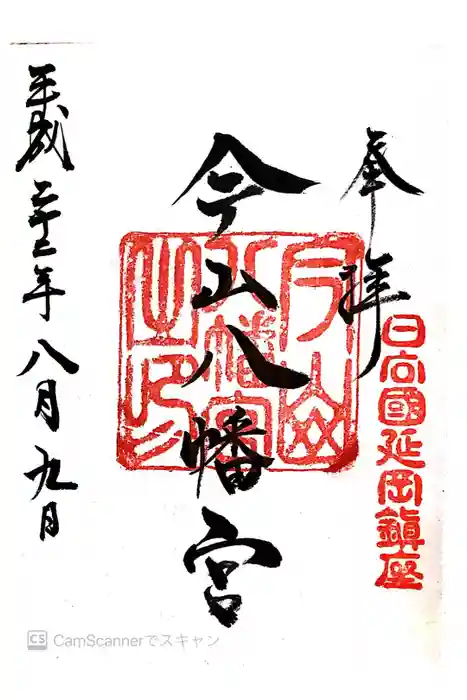 奉拝
日向國延岡鎮座
今山八幡宮
今山
八幡宮
之印
平成二十二年八月九日
CS CamScannerでスキャン